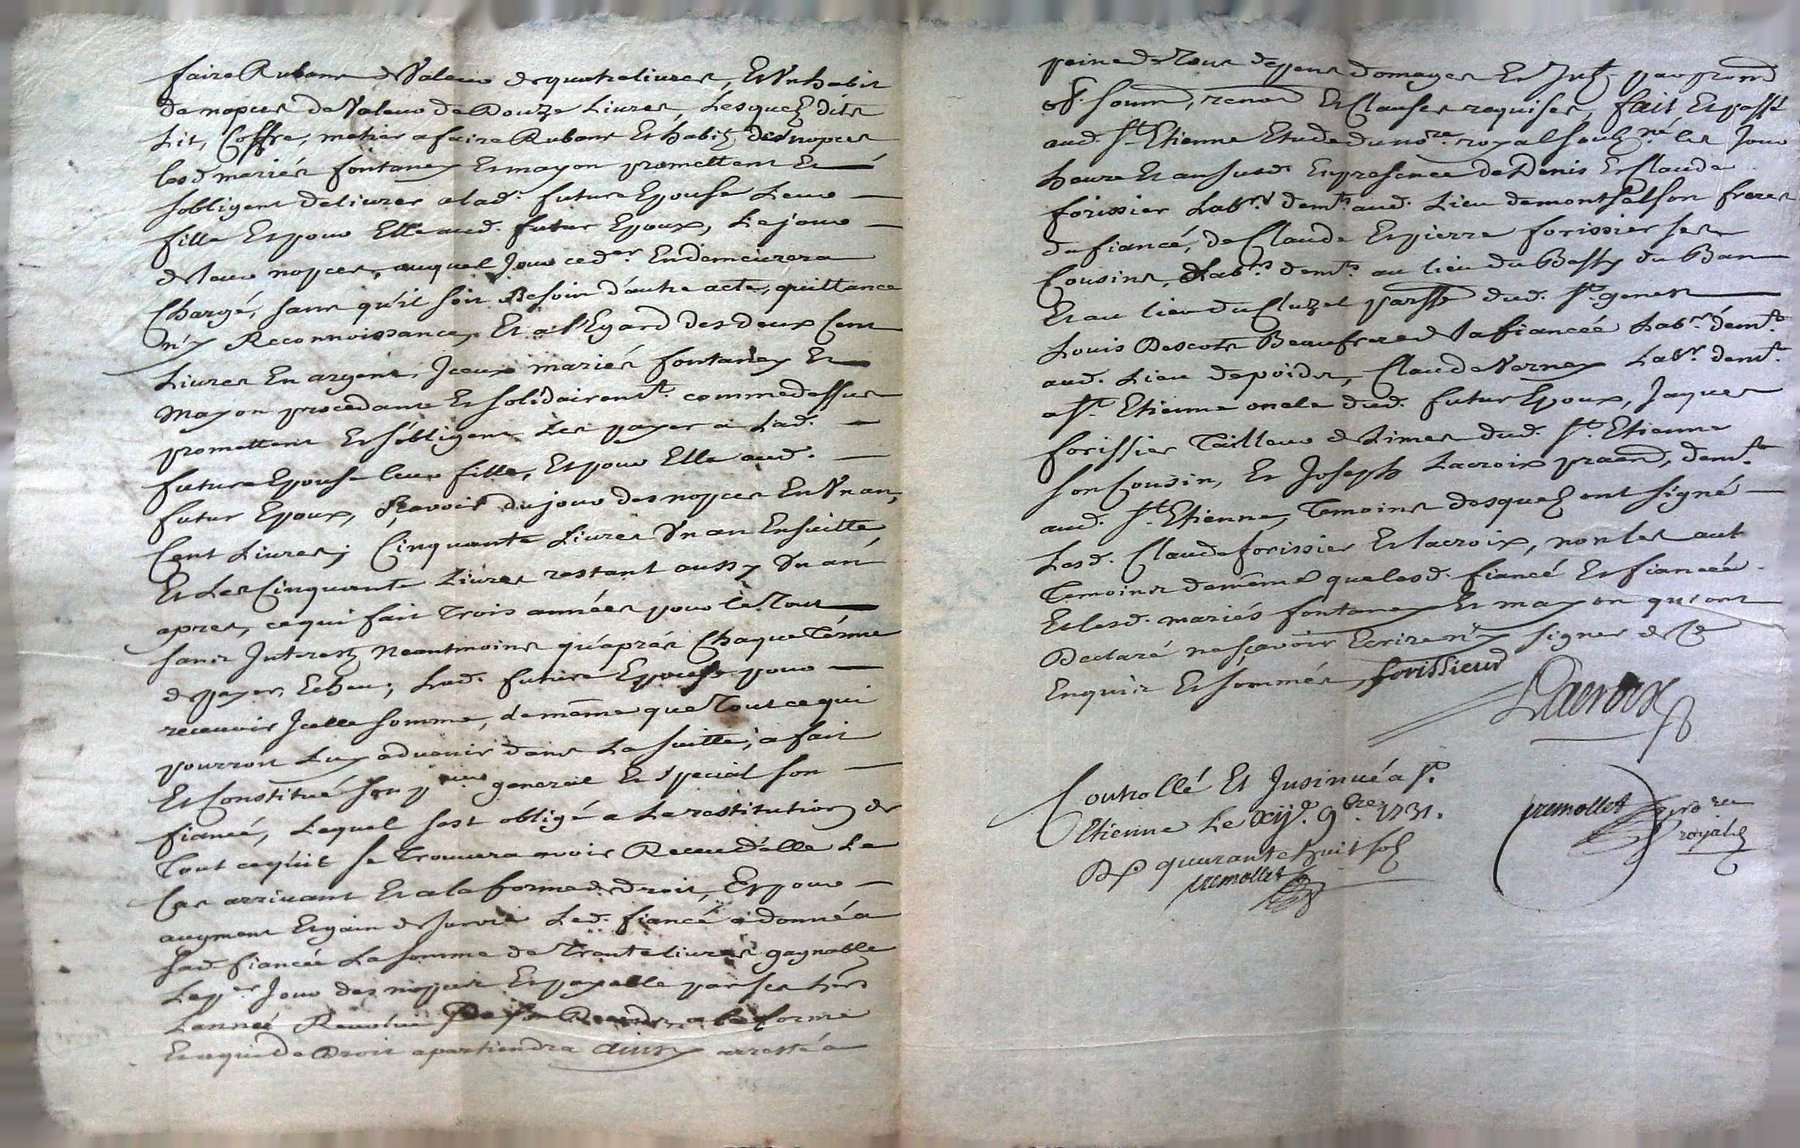 faire Rubans de Valeur de quatre livres, Et Un habit
de nopces de Valeur de Douze Livres, Lesquelz dits
Lit, Coffre, metier a faire Rubans Et habitz de nopces
lesd. mariés fontaney Et mayon promettent Et
sobligent delivrer a lad. future Epouse Leur
fille Et pour Elle aud. futur Epoux, Le jour
de leur nopces, auquel Jour ced.er En demeurera
Chargé, sans qu'il soit Besoin d'autre acte, quittance
n'y Reconnoissance, Et a l'Egard des deux Cent
Livres En argent, Jceux mariés fontaney Et
Mayon procedants Et solidairemt. comme dessus
promettent Et s'obligent Les payer a Lad.
future Epouse leur fille, Et pour Elle aud.
futur Epoux, Sçavoir du jour des nopces En Un an,
Cent Livres; Cinquante Livres Un an Ensuitte
Et Les Cinquante Livres restant aussy Un an
apres, ce qui fait Trois années pour le Tout
sans Jnteretz Neantmoins qu'aprés Chaque Térme
de payer Echeu; Lad. future Epouse pour
recevoir Jcelle somme, de méme que Tout ce qui
pourroit Luy advenir dans La suitte, a fait
Et Constitué son pr general Et special son
fiancé, Lequel sest obligé a La restitution de
Tout ce qu'il se Trouvera avoir Receu d'elle Le
Cas arrivant Et a la forme de droit, Et pour
augment Et gain de survie Led. fiancé a donné a
sad. fiancée La somme de Trente livres gagnable
Le pr. Jour des nopces Et payable par ses hers
Lannée Revolue a la forme
Et a qui de Droit apartiendra Ainsy arresté a
peine de Tous depens domages Et Jntz. par prom
obl. soum, renon Et Clauses requises, fait Et passé
aud. St. Etienne Etude du nore. royal soubzné. les Jour
heure Et an susd. En presence de Denis Et Claude
forissier Labrs. demts. aud. Lieu de montsalson freres
du fiancé, de Claude Et pierre forissier ses
Cousins, Labrs. demts. au lieu du Bessy du Ban
Et au lieu du Cluzel parsse dud. St. genest
Louis Descots Beaufrere de la fiancée Labr. demt.
aud. Lieu de poids, Claude Verney Labr. demt.
a St. Etienne oncle dud. futur Epoux, Jaques
forissier Tailleur de Limes dud. St. Etienne
son Cousin, Et Joseph Lacroix praticn, demt.
aud. St. Etienne, Temoins desquelz ont signé
Lesd. Claude forissier Et lacroix, non les aut
Temoins de même que lesd. fiancé Et fiancée
Et lesd. mariés fontaney Et mayon qui ont
Declaré ne sçavoir Ecrire n'y signer de ce
Enquis Et sommés, forissieur
Lacroix
Controllé Et Jnsinué a St.
Etienne Le xije. 9bre. 1731.
Rx quarante huit solz
premollet
premollet nore
royal